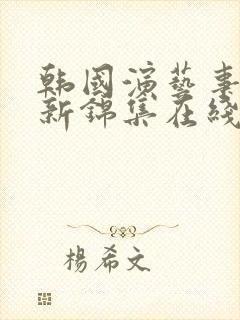 韩國演藝圈
新錦集在綫
楊希文